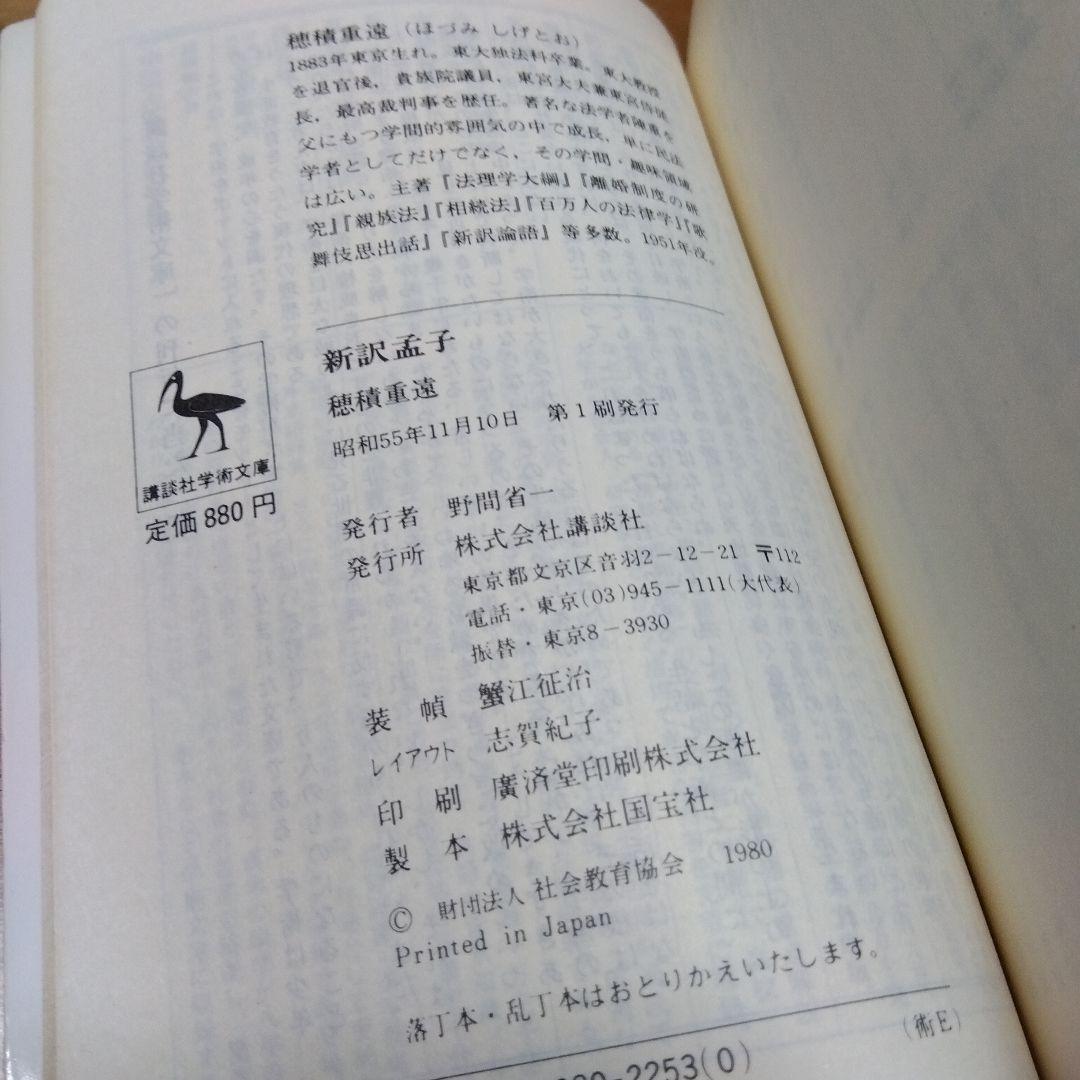 穂積重遠(ほづみ しげとお)
1883年東京生れ。東大独法科卒業。東大教授
を退官後，貴族院議員，東宮大夫兼東宮侍従
長，最高裁判事を歴任。著名な法学者陳重を
父にもつ学問的雰囲気の中で成長，単に民法
学者としてだけでなく，その学問・趣味領域
は広い。主著『法理学大綱』『離婚制度の研
究』『親族法』『相続法』『百万人の法律学』『歌
舞伎思出話』『新訳論語』等多数。1951年没。
新訳孟子
穂積重遠
昭和55年11月10日 第1刷発行
講談社学術文庫
定価880円
発行者 野間省一
発行所 株式会社講談社
東京都文京区音羽2-12-21 〒112
電話・東京(03)945-1111(大代表)
振替・東京8-3930
装幀 蟹江征治
レイアウト 志賀紀子
印刷 廣済堂印刷株式会社
製本 株式会社国宝社
© 財団法人 社会教育協会 1980
Printed in Japan
落丁本・乱丁本はおとりかえいたします。
(術E)
-2253(0)